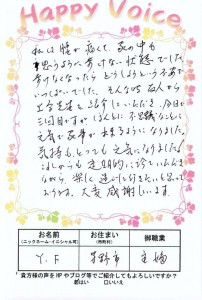 Happy Voice
私は腰が痛くて、家の中も
思うように歩けない状態でした。
歩けなくなったらどうしようという不安で
いっぱいでした。そんな時、友人から
先生を紹介していただき、今日で
三回目ですが、しらんまに不思議なことに
元気で家事が出来るようになりました。
気持も、とっても元気になりました。
これからも定期的に診ていただき
ながら、楽しく過して行きたいと思って
おります。大変感謝しています。
お名前
(ニックネーム・イニシャル可)
お住まい
(市町村)
御職業
Y.F
茅野市
主婦
貴方様の声をHPやブログ等でご紹介してもよろしいですか?
はい □いいえ